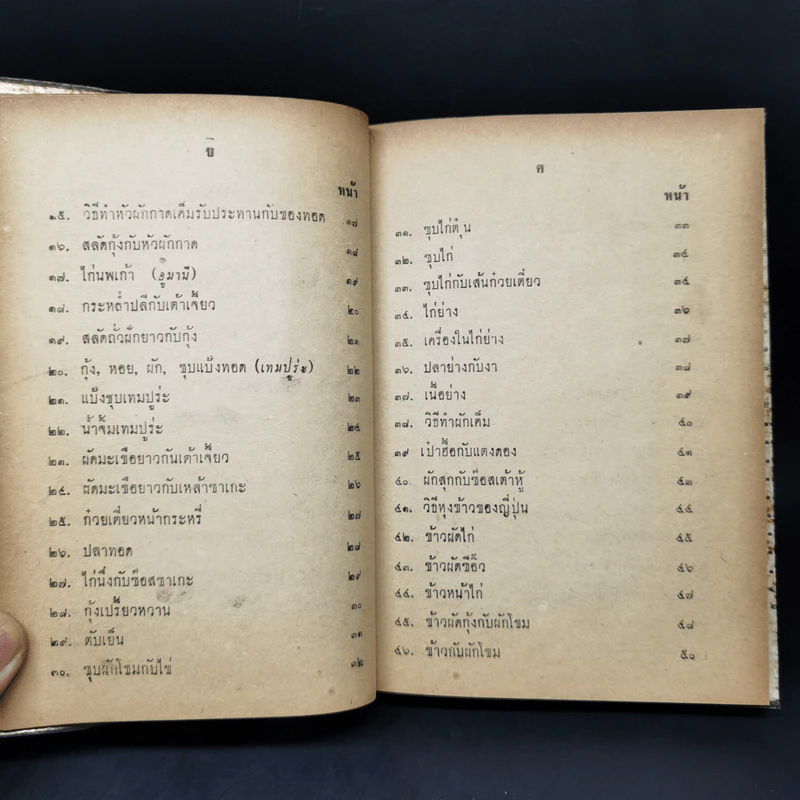 ข
หน้า
๑๕. วิธีทำหัวผักกาดเค็มรับประทานกับของทอด ๑๗
๑๖. สลัดกุ้งกับหัวผักกาด ๑๘
๑๗. ไก่นพเก้า (อูมานี) ๑๙
๑๘. กระหล่ำปลีกับเต้าเจี้ยว ๒๐
๑๙. สลัดถั่วฝักยาวกับกุ้ง ๒๑
๒๐. กุ้ง, หอย, ผัก, ชุบแป้งทอด (เทมปูร่ะ) ๒๒
๒๑. แป้งชุบเทมปูร่ะ ๒๓
๒๒. น้ำจิ้มเทมปูร่ะ ๒๔
๒๓. ผัดมะเขือยาวกับเต้าเจี้ยว ๒๕
๒๔. ผัดมะเขือยาวกับเหล้าซาเกะ ๒๖
๒๕. ก๋วยเตี๋ยวหน้ากระหรี่ ๒๗
๒๖. ปลาทอด ๒๘
๒๗. ไก่นึ่งกับซ๊อสซาเกะ ๒๙
๒๘. กุ้งเปรี้ยวหวาน ๓๐
๒๙. ตับเย็น ๓๑
๓๐. ซุบผักโขมกับไข่ ๓๒
ค
หน้า
๓๑. ซุบไก่ตุ๋น ๓๓
๓๒. ซุบไก่ ๓๔
๓๓. ซุบไก่กับเส้นก๋วยเตี๋ยว ๓๕
๓๔. ไก่ย่าง ๓๖
๓๕. เครื่องในไก่ย่าง ๓๗
๓๖. ปลาย่างกับงา ๓๘
๓๗. เนื้อย่าง ๓๙
๓๘. วิธีทำผักเค็ม ๔๐
๓๙ เป๋าฮื้อกับแตงดอง ๔๑
๔๐. ผักสุกกับซ๊อสเต้าหู้ ๔๓
๔๑. วิธีหุงข้าวของญี่ปุ่น ๔๔
๔๒. ข้าวผัดไก่ ๔๕
๔๓. ข้าวผัดซีอิ๊ว ๔๖
๔๔. ข้าวหน้าไก่ ๔๗
๔๕. ข้าวผัดกุ้งกับผักโขม ๔๘
๔๖. ข้าวกับผักโขม ๕๐